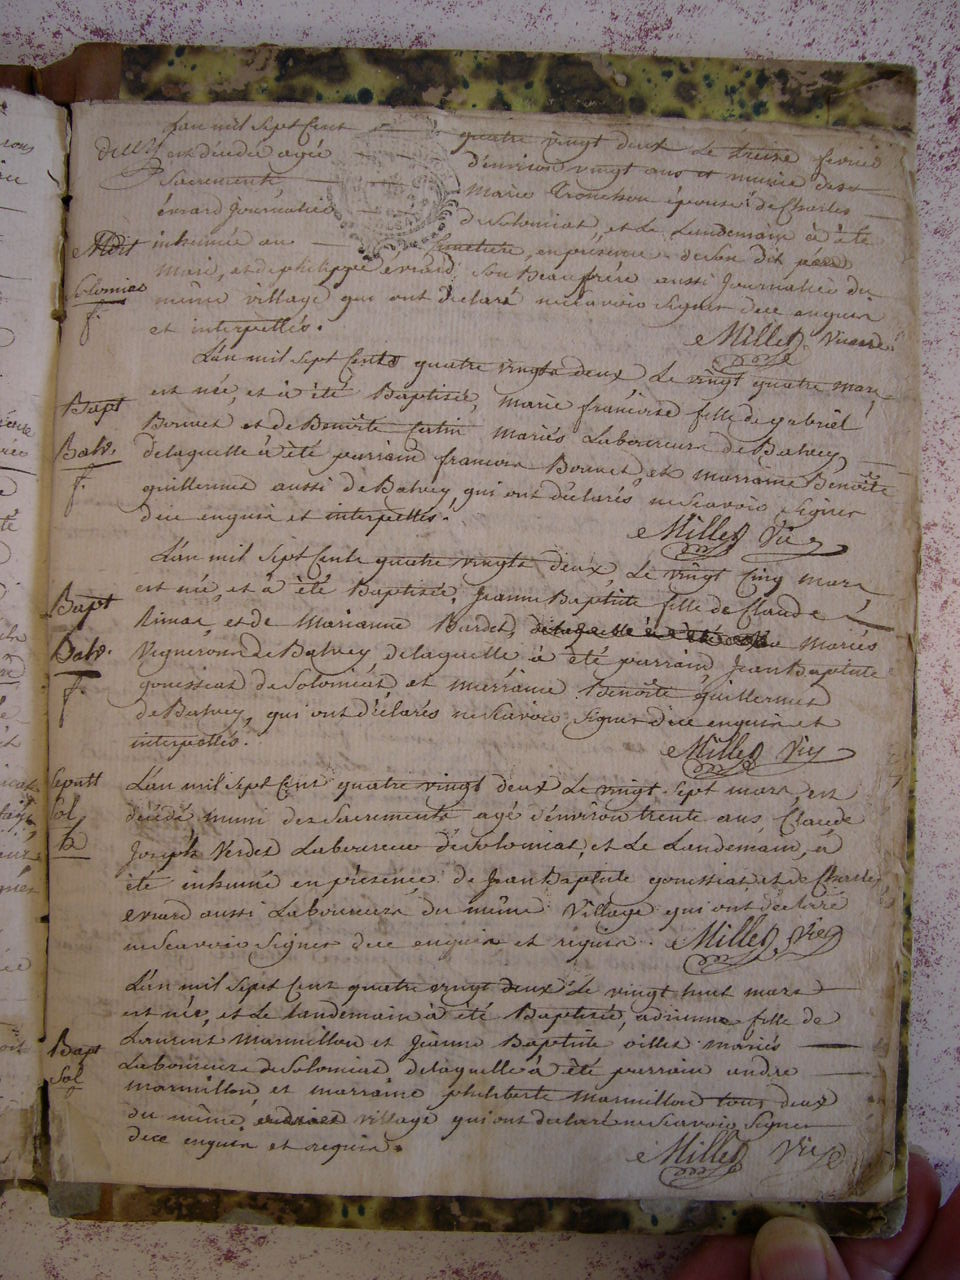 L'an mil Sept Cent quatre vingt deux Le treize fevrier
est décédée agée d'environ vingt ans et munie des
Sacrements, Marie Tronchon épouse de Charles
évrard Journalier de Solomiat, et Le Lendemain à été
inhumée au Cimetiere, en présence de son dit
Solomiat
mari, et de philippe evrard Son Beaufrére aussi Journalier du
même village qui ont déclaré ne scavoir Signer de ce enquis
et interpellés. Millet Vicaire
L'an mil Sept Cents quatre vingts deux Le vingt quatre mars
est née, et à été Baptisée, marie françoise fille de gabriel
Bapt
Bonnet et de Benoite Cutin mariés Laboureurs de Balvey
Balv.
de laquelle à été parrain francois Bonnet, et marraine Benoite
f.
guillermet aussi de Balvey, qui ont déclarés ne scavoir Signer
de ce enquis et interpellés. Millet Vic
L'an mil Sept Cents quatre vingts deux, Le vingt Cinq mars
est née, et à été Baptisée, Jeanne Baptiste fille de Claude
Bapt
et de Marianne Bardet, mariés
Balv.
Vignerons de Balvey de laquelle à été parrain Jean Baptiste
f.
gouissiat de Solomiat, et marraine Benoite guillermet
de Balvey, qui ont déclarés ne scavoir Signer de ce enquis et
interpellés. Millet Vic
Sepult
L'an mil Sept Cent quatre vingt deux Le vingt Sept mars est
Sol
décédé muni des Sacrements agé d'environ trente ans, Claude
h
Joseph Verdet Laboureur de Solomiat, et Le Landemain, à
été inhumé en présence de Jean Baptiste gouissiat et de Charles
evrard aussi Laboureurs du même Village qui ont déclaré
ne scavoir Signer de ce enquis et requis. Millet, Vic
L'an mil Sept Cent quatre vingt deux Le vingt huit mars
est née, et Le landemain à été Baptisée, adrienne fille de
Bapt
Laurent Marmillon et Jeanne Baptiste oillet mariés
Sol
Laboureurs de Solomiat de laquelle à été parrain andre
f
marmillon et marraine philiberte Marmillon tous deux
du même village qui ont déclaré ne scavoir Signer
de ce enquis et requis. Millet Vic